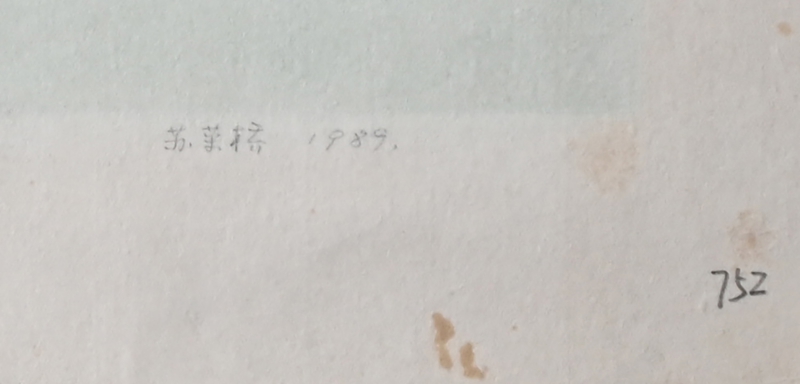 苏莱桥 1989.
752